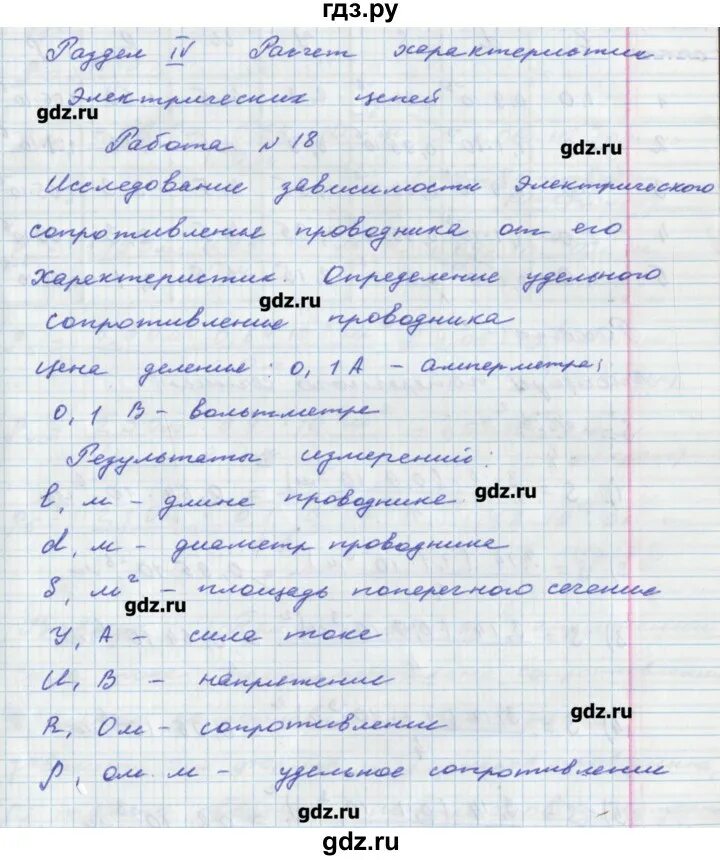 гдз.ру
Раздел IV Расчет характеристик
электрических цепей
gdz.ru
Работа N 18
gdz.ru
Исследование зависимости электрического
сопротивление проводника от его
характеристик. Определение удельного
gdz.ru
сопротивление проводника
Цена деление: 0,1 А - амперметра;
0,1 В - вольтметре
Результаты измерений:
l, м - длине проводнике
gdz.ru
d, м - диаметр проводнике
S, м² - площадь поперегного сечение
gdz.ru
У, А - сила токе
U, В - напряжение
gdz.ru
R, Ом - сопротивление
ρ, ом. м - удельное сопротивление
gdz.ru
gdz.ru